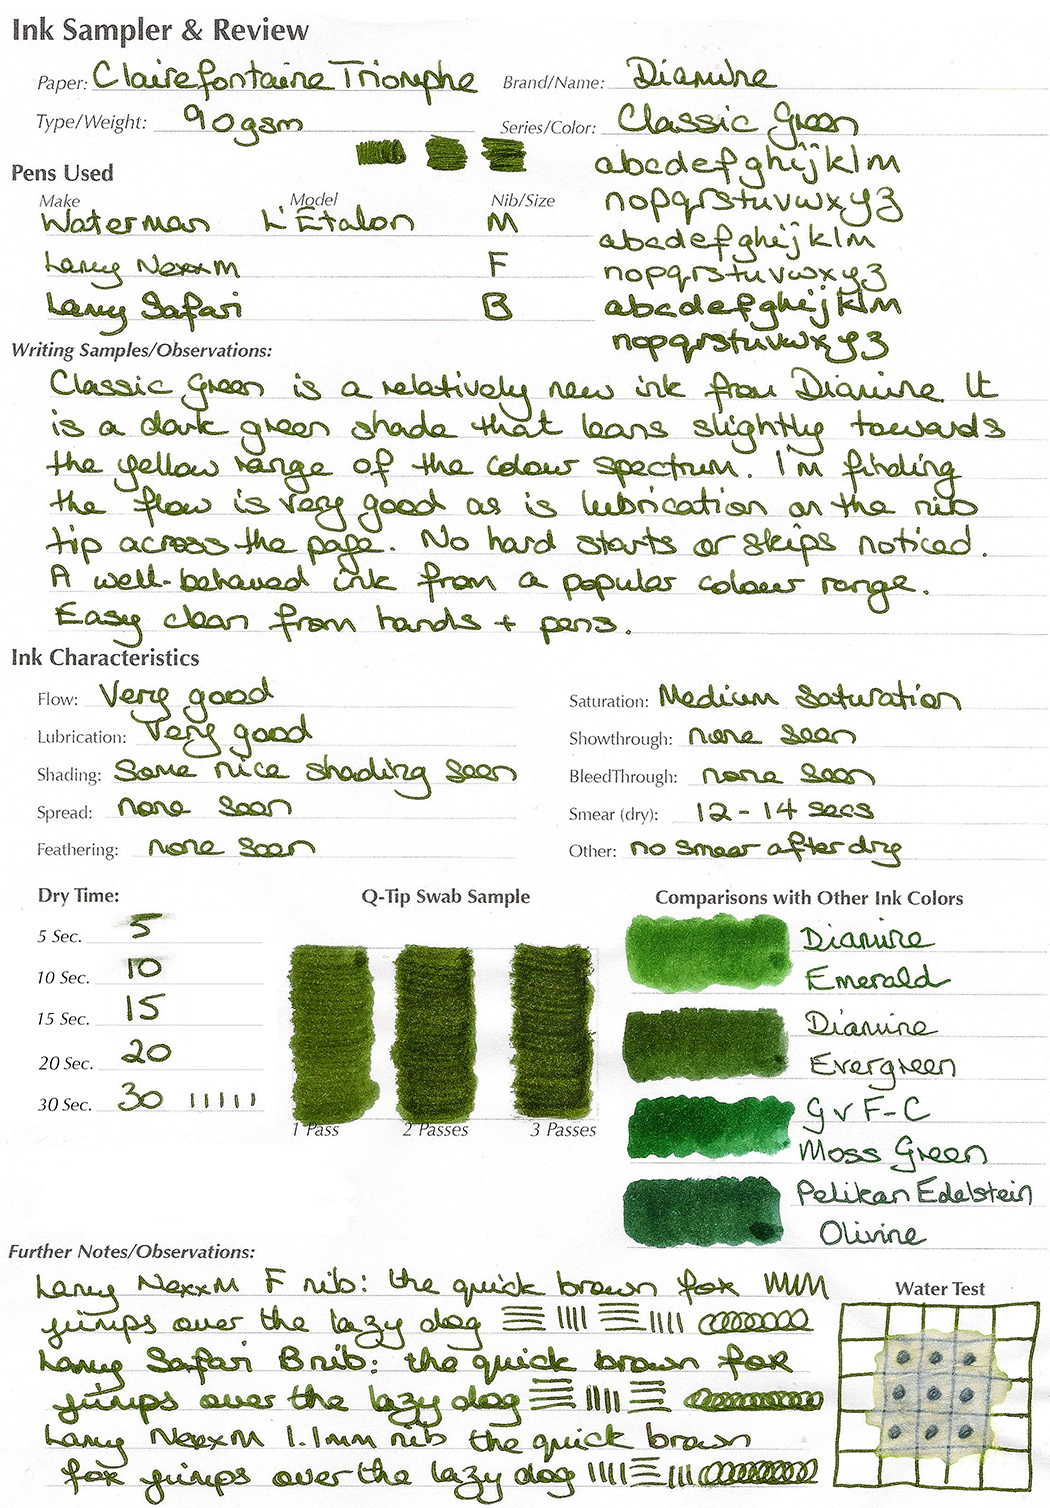 Ink Sampler & Review
Paper: Clairefontaine Triomphe Brand/Name: Diamine
Type/Weight: 90gsm Series/Color: Classic Green
abcdefghijklm
Pens Used
nopqrstuvwxyz
Make Model Nib/Size
Waterman L'Étalon M
abcdefghijklm
Lamy NexxM F
nopqrstuvwxyz
Lamy Safari B
abcdefghijklm
nopqrstuvwxyz
Writing Samples/Observations:
Classic Green is a relatively new ink from Diamine. It
is a dark green shade that leans slightly towards
the yellow range of the colour spectrum. I'm finding
the flow is very good as is lubrication on the nib
tip across the page. No hard starts or skips noticed.
A well-behaved ink from a popular colour range.
Easy clean from hands + pens.
Ink Characteristics
Flow: Very good Saturation: Medium Saturation
Lubrication: Very good Showthrough: none seen
Shading: Some nice shading seen BleedThrough: none seen
Spread: none seen Smear (dry): 12-14 secs
Feathering: none seen Other: no smear after dry
Dry Time: Q-Tip Swab Sample Comparisons with Other Ink Colors
5 Sec. 5
10 Sec. 10
15 Sec. 15
20 Sec. 20
30 Sec. 30
1 Pass 2 Passes 3 Passes
Diamine
Emerald
Diamine
Evergreen
GvF-C
Moss Green
Pelikan Edelstein
Olivine
Further Notes/Observations:
Lamy NexxM F nib: the quick brown fox
jumps over the lazy dog
Lamy Safari B nib: the quick brown fox
jumps over the lazy dog
Lamy NexxM 1.1mm nib the quick brown
fox jumps over the lazy dog
Water Test